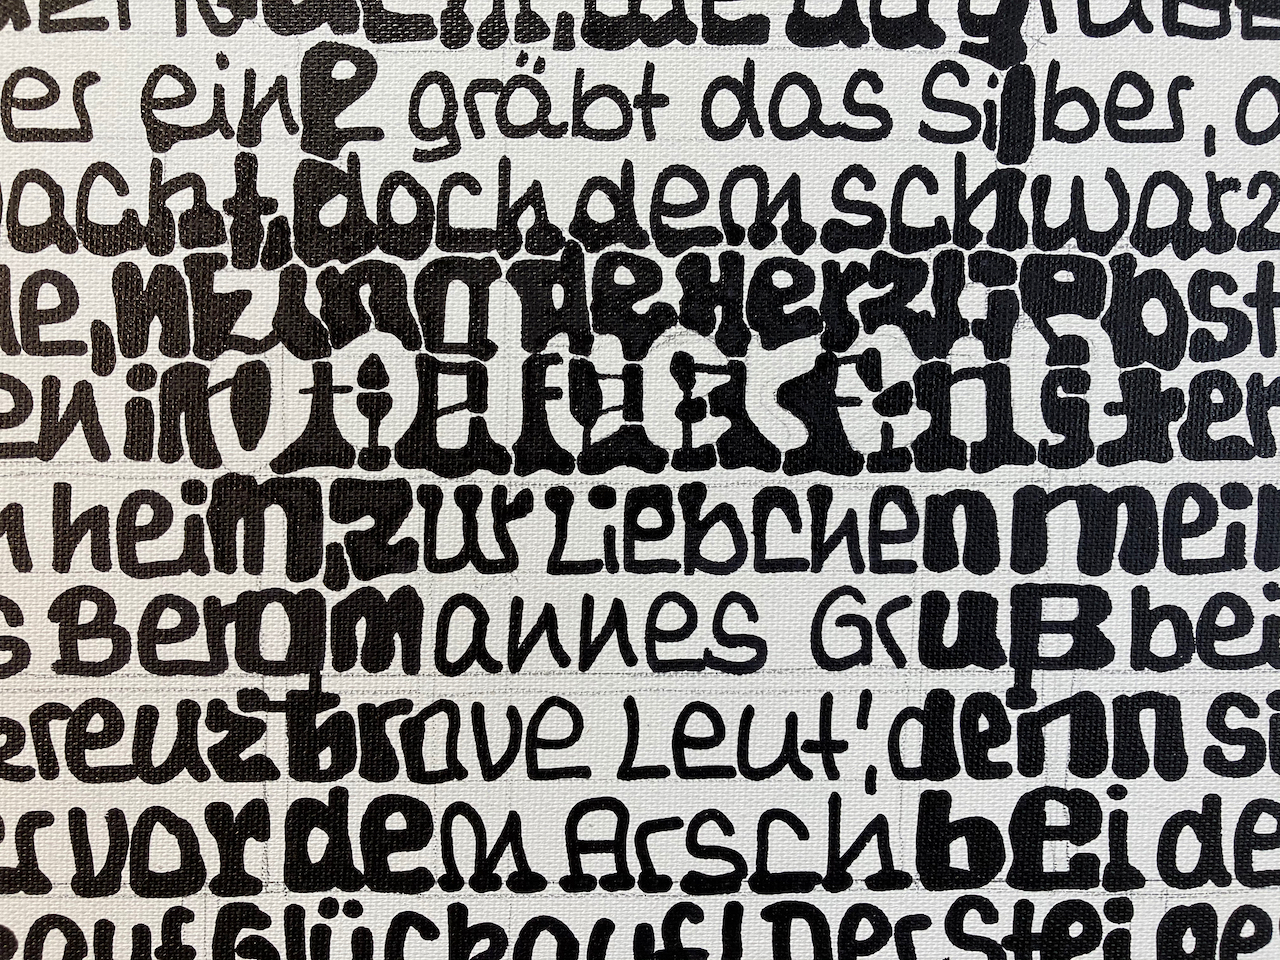 der Nacht, die da grabe
er eine gräbt das Silber, d
acht, doch dem schwarz
e, Nzing de Herzliebst
en im tiefen finster
n heim, zur Liebchen mei
s Bergmannes Gruß bei
kreuzbrave Leut', denn si
er vor dem Arsch bei de
auf Glückauf! Der Steige